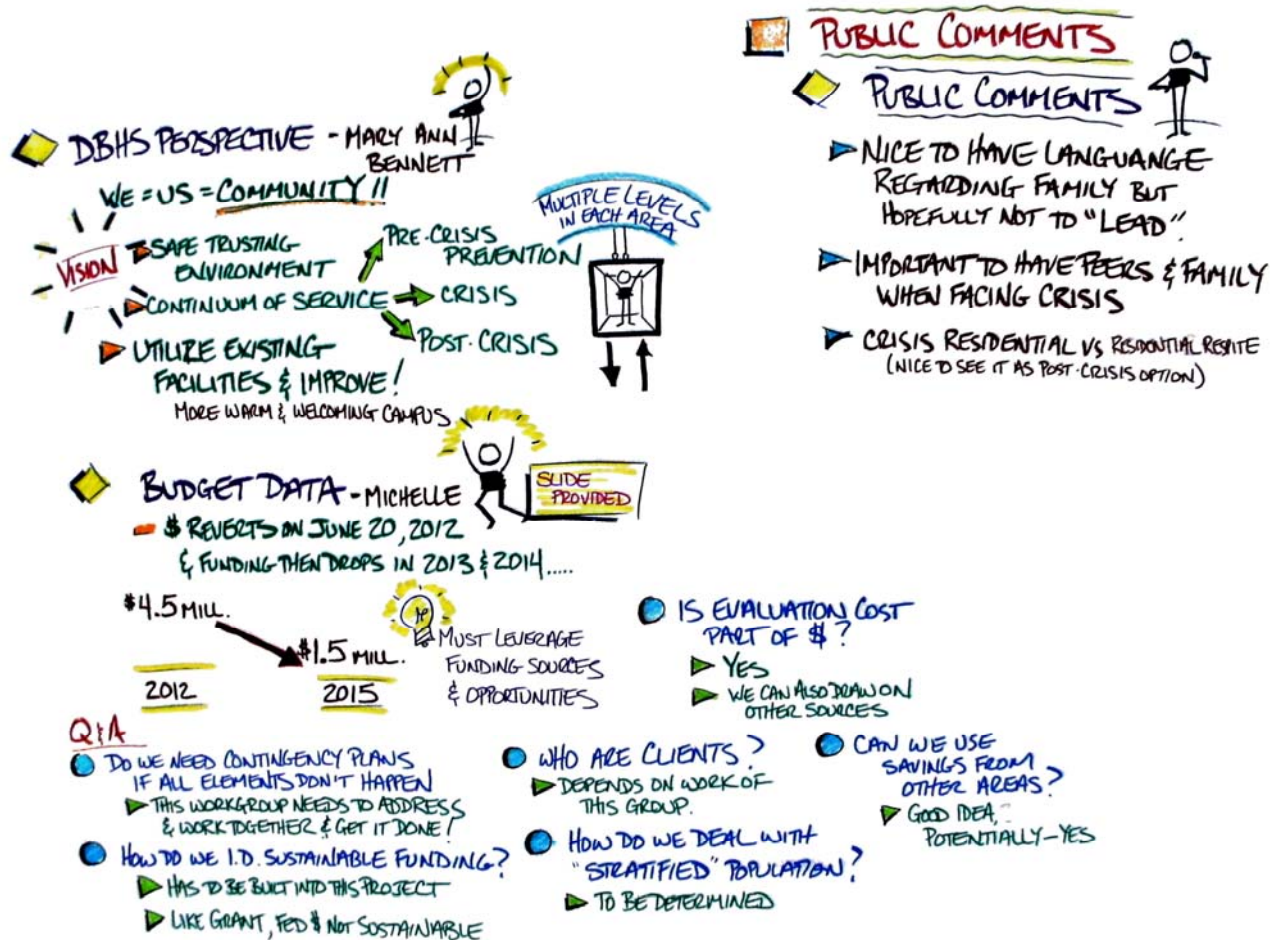 DBHS PERSPECTIVE - MARY ANN
BENNETT
WE = US = COMMUNITY !!
VISION
SAFE TRUSTING
ENVIRONMENT
CONTINUUM OF SERVICE
PRE-CRISIS
PREVENTION
CRISIS
POST-CRISIS
UTILIZE EXISTING
FACILITIES & IMPROVE!
MORE WARM & WELCOMING CAMPUS
MULTIPLE LEVELS
IN EACH AREA
BUDGET DATA - MICHELLE
SLIDE
PROVIDED
$ REVERTS ON JUNE 20, 2012
& FUNDING THEN DROPS IN 2013 & 2014.....
$4.5 MILL.
2012
$1.5 MILL.
2015
MUST LEVERAGE
FUNDING SOURCES
& OPPORTUNITIES
IS EVALUATION COST
PART OF $ ?
YES
WE CAN ALSO DRAW ON
OTHER SOURCES
Q & A
DO WE NEED CONTINGENCY PLANS
IF ALL ELEMENTS DON'T HAPPEN
THIS WORKGROUP NEEDS TO ADDRESS
& WORK TOGETHER & GET IT DONE!
HOW DO WE I.D. SUSTAINABLE FUNDING?
HAS TO BE BUILT INTO THIS PROJECT
LIKE GRANT, FED $ NOT SUSTAINABLE
WHO ARE CLIENTS?
DEPENDS ON WORK OF
THIS GROUP.
HOW DO WE DEAL WITH
"STRATIFIED" POPULATION?
TO BE DETERMINED
CAN WE USE
SAVINGS FROM
OTHER AREAS?
GOOD IDEA,
POTENTIALLY - YES
PUBLIC COMMENTS
PUBLIC COMMENTS
NICE TO HAVE LANGUANGE
REGARDING FAMILY BUT
HOPEFULLY NOT TO "LEAD".
IMPORTANT TO HAVE PEERS & FAMILY
WHEN FACING CRISIS
CRISIS RESIDENTIAL VS RESIDENTIAL RESPITE
(NICE TO SEE IT AS POST-CRISIS OPTION)